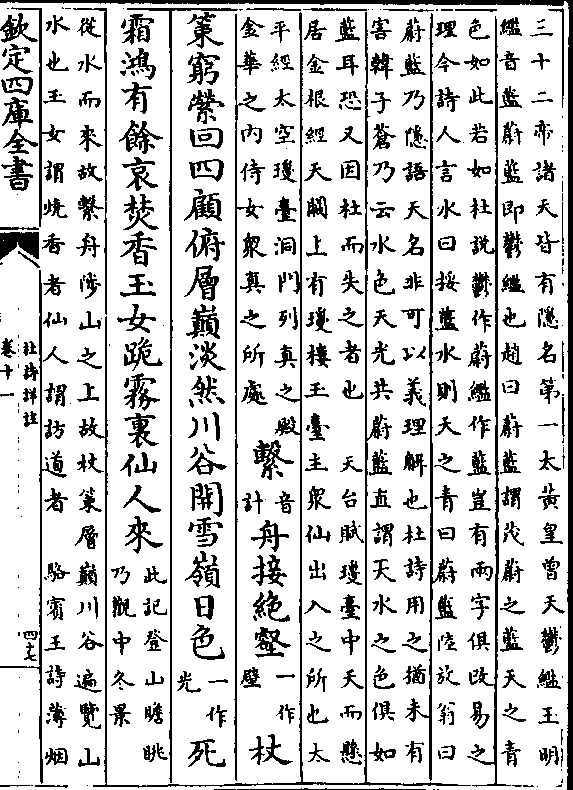 三十二帝諸天皆有隱名第一太黃皇曾天鬱繿玉明
繿音藍蔚藍即鬱繿也趙曰蔚藍謂茂蔚之藍天之青
色如此若如杜說鬱作蔚繿作藍豈有兩字俱改易之
理今詩人言水曰挼藍水則天之青曰蔚藍陸放翁曰
蔚藍乃隱語天名非可以義理解也杜詩用之猶未有
害韓子蒼乃云水色天光共蔚藍直謂天水之色俱如
藍耳恐又因杜而失之者也 天台賦瓊臺中天而懸
居金根經天闕上有瓊樓玉臺主衆仙出入之所也太
平經太空瓊臺洞門列真之殿
金華之内侍女衆真之所處
繫音計舟接絶壑一作壁杖
策窮縈回四顧俯層巔淡然川谷開雪嶺日色一作光死
霜鴻有餘哀焚香玉女跪霧裏仙人來此記登山瞻眺
乃觀中冬景
從水而來故繫舟陟山之上故杖策層巔川谷遍覽山
水也玉女謂燒香者仙人謂訪道者 駱賓王詩薄烟
欽定四庫全書
杜詩詳註
卷十一
四十七